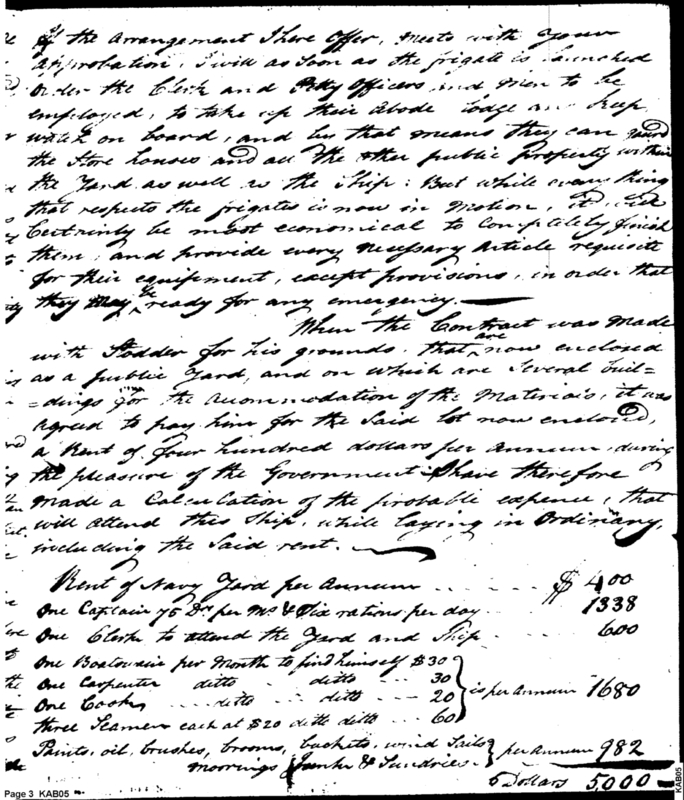 if the arrangement I here offer, meets with your
approbation, I will as soon as the frigate is launched
order the Clerk and Petty Officers and Men to be
employed, to take up their abode lodge and keep
watch on board, and by that means they can guard
the Store houses and all the other public property within
the Yard as well as the Ship: But while every thing
that respects the frigates is now in Motion, it will
Certainly be most economical to Completely finish
them; and provide every necessary Article requisite
for their equipment, except provisions, in order that
they may be ready for any emergency.
When the Contract was made
with Stodder for his grounds, that are now enclosed
as a public Yard, and on which are Several buil=
=dings for the accommodation of the Materials, it was
agreed to pay him for the Said lot now enclosed,
a Rent of four hundred dollars per Annum, during
the pleasure of the Government I have therefore
made a Calculation of the probable expence, that
will attend this Ship, while laying in Ordinary,
including the Said rent.
Rent of Navy Yard per Annum $ 400
One Captain 75 Drs per Mo & Six rations per day 1338
One Clerk to attend the Yard and Ship 600
One Boatswain per Month to find himself $30
One Carpenter ditto ditto 30
One Cook ditto ditto 20 is per annum 1680
three Seamen each at $20 ditto ditto 60
Paints, oil, brushes, brooms, buckets, wind Sails
moorings Junk & Sundries per Annum 982
Dollars 5,000
Page 3 KAB05
KAB05